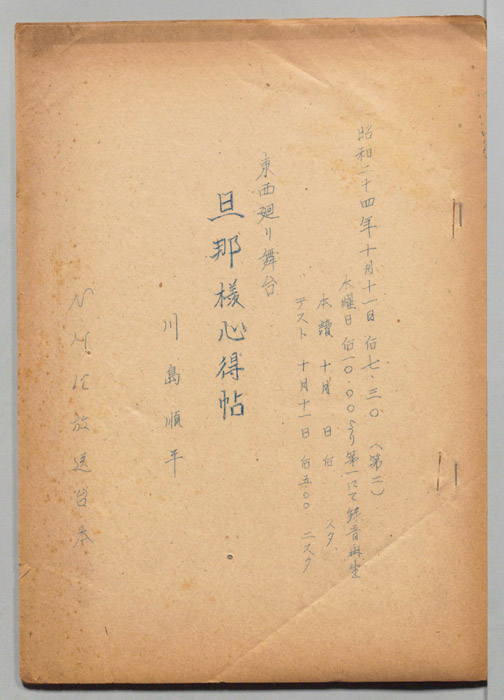 昭和二十四年十月十一日 后七・三〇 (第二)
水曜日 后一〇・〇〇より第一にて録音再生
本讀 十月 日 后 スタ
テスト 十月十一日 后五〇〇 二スタ
東西廻り舞台
旦那様心得帖
川島順平
NHK放送台本